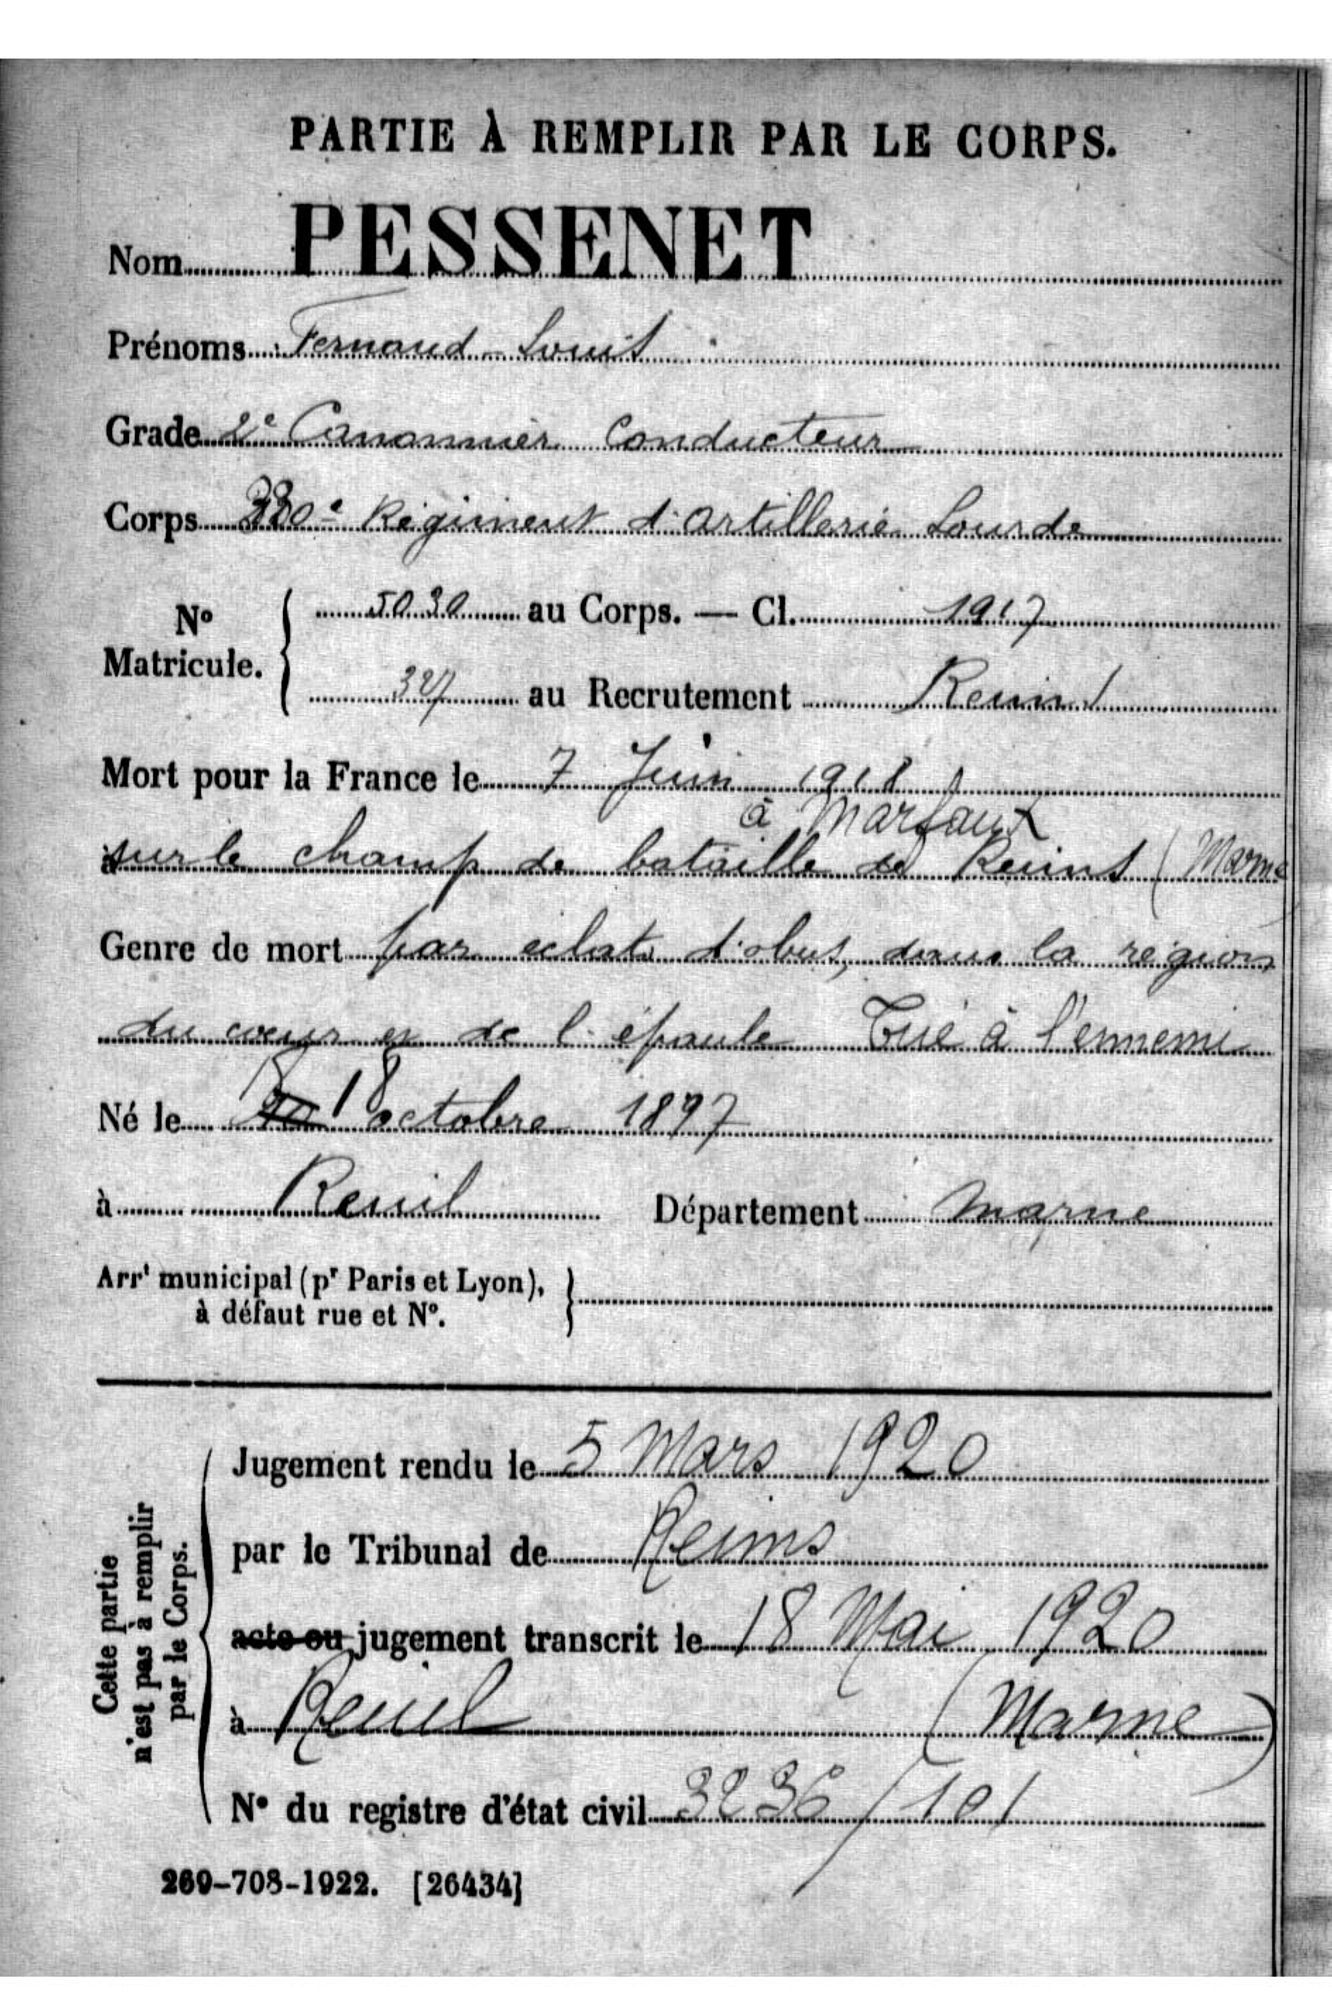 PARTIE À REMPLIR PAR LE CORPS.
Nom PESSENET
Prénoms Fernand-Louis
Grade 2e Canonnier Conducteur
Corps Régiment d'Artillerie Lourde
No Matricule.
5030 au Corps. — Cl. 1917
327 au Recrutement Reims
Mort pour la France le 7 Juin 1918
à Marfaux
sur le champ de bataille de Reims (Marne
Genre de mort par eclats d'obus, dans la région
du coeur et de l'épaule Tué à l'ennemi
Né le 18 octobre 1897
à Reuil Département Marne
Arrt municipal (pr Paris et Lyon),
à défaut rue et No.
Cette partie
n'est pas à remplir
par le Corps.
Jugement rendu le 5 Mars 1920
par le Tribunal de Reims
acte ou jugement transcrit le 18 Mai 1920
à Reuil (Marne)
No du registre d'état civil 3236/101
269-708-1922. [26434]